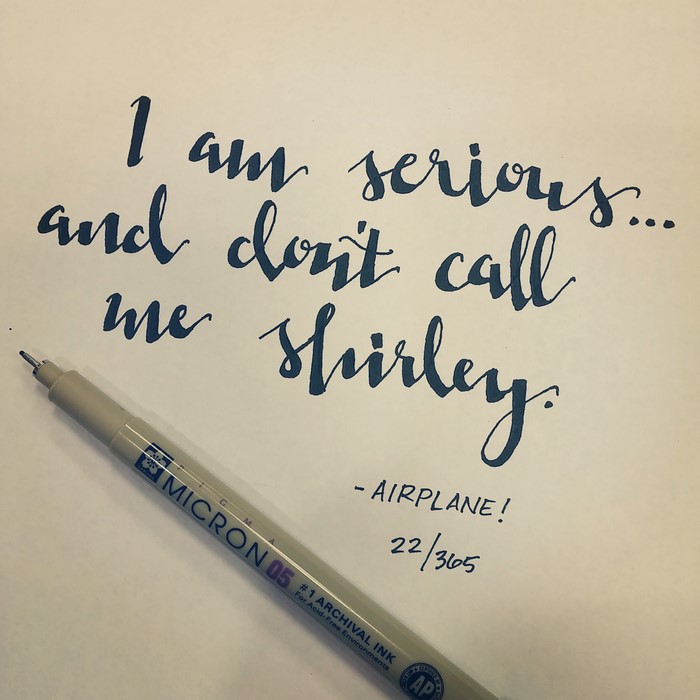 I am serious...
and don't call
me Shirley.
- AIRPLANE!
22/365
SIGMA
MICRON 05
#1 ARCHIVAL INK
For Acid-Free Environments
AP